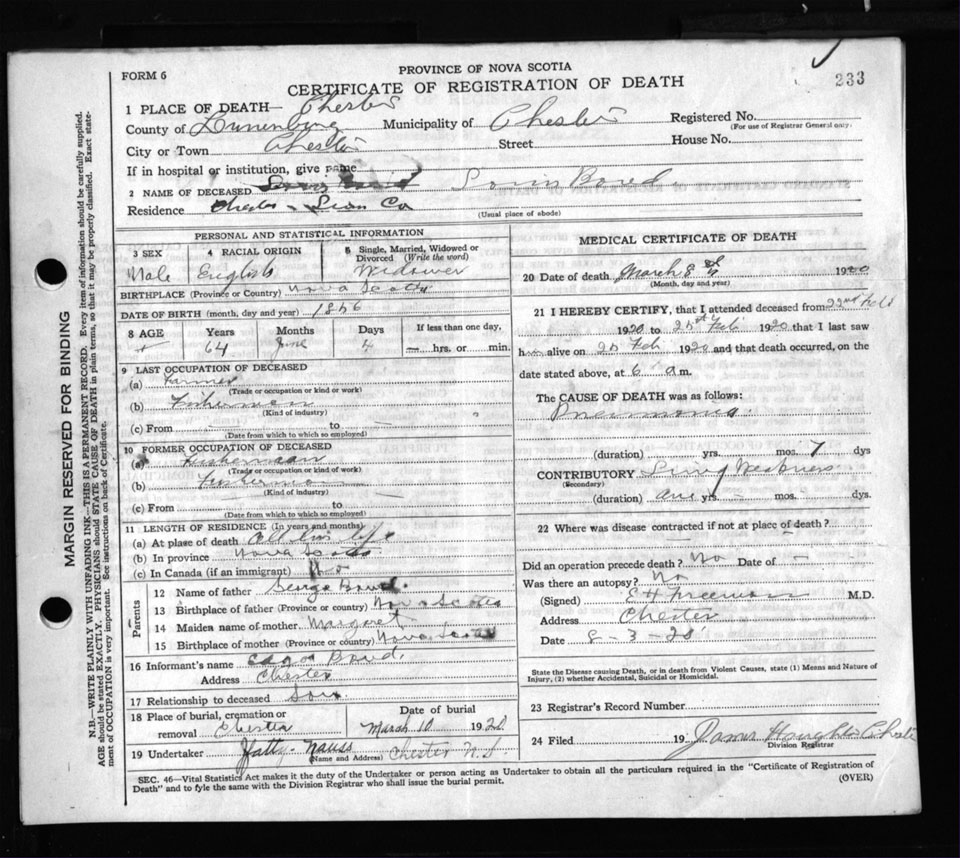 FORM 6
PROVINCE OF NOVA SCOTIA
CERTIFICATE OF REGISTRATION OF DEATH
233
1 PLACE OF DEATH— Chester
County of Lunenburg Municipality of Chester Registered No.
(For use of Registrar General only)
City or Town Chester Street House No.
If in hospital or institution, give name
2 NAME OF DECEASED
Residence Chester Co
(Usual place of abode)
PERSONAL AND STATISTICAL INFORMATION
3 SEX 4 RACIAL ORIGIN 5 Single, Married, Widowed or Divorced (Write the word)
Male English Widower
BIRTHPLACE (Province or Country) Nova Scotia
DATE OF BIRTH (month, day and year) 1856
8 AGE Years Months Days If less than one day,
64 June 4 — hrs. or min.
9 LAST OCCUPATION OF DECEASED
(a) Farmer
(Trade or occupation or kind or work)
(b) Fisherman
(Kind of industry)
(c) From — to —
(Date from which to which so employed)
10 FORMER OCCUPATION OF DECEASED
(a) Fisherman
(Trade or occupation or kind of work)
(b) Fisherman
(Kind of industry)
(c) From — to —
(Date from which to which so employed)
11 LENGTH OF RESIDENCE (In years and months)
(a) At place of death All his life
(b) In province Nova Scotia
(c) In Canada (if an immigrant)
Parents
12 Name of father
13 Birthplace of father (Province or country) Nova Scotia
14 Maiden name of mother Margaret
15 Birthplace of mother (Province or country) Nova Scotia
16 Informant's name
Address Chester
17 Relationship to deceased Son
18 Place of burial, cremation or removal Chester
Date of burial March 10 1920
19 Undertaker Nauss Chester N.S.
(Name and Address)
MEDICAL CERTIFICATE OF DEATH
20 Date of death March 8 1920
(Month, day and year)
21 I HEREBY CERTIFY, that I attended deceased from 22nd Feb
1920 to 25th Feb 1920 that I last saw
h alive on 25 Feb 1920 and that death occurred, on the
date stated above, at 6 a.m.
The CAUSE OF DEATH was as follows:
Pneumonia.
(duration) yrs. mos. 7 dys
CONTRIBUTORY Lung Weakness
(Secondary)
(duration) yrs. — mos. dys.
22 Where was disease contracted if not at place of death?
Did an operation precede death? No Date of —
Was there an autopsy? No
(Signed) E H Freeman M.D.
Address Chester
Date 8-3-20
State the Disease causing Death, or in death from Violent Causes, state (1) Means and Nature of
Injury, (2) whether Accidental, Suicidal or Homicidal.
23 Registrar's Record Number
24 Filed 19 James Houghton Chester
Division Registrar
SEC. 46—Vital Statistics Act makes it duty of the Undertaker or person acting as Undertaker to obtain all the particulars required in the "Certificate of Registration of
Death" and to fyle the same with the Division Registrar who shall issue the burial permit.
(OVER)
MARGIN RESERVED FOR BINDING
N.B.—WRITE PLAINLY WITH UNFADING INK—THIS IS A PERMANENT RECORD. Every item of information should be carefully supplied.
AGE should be stated EXACTLY. PHYSICIANS should STATE CAUSE OF DEATH in plain terms, so that it may be properly classified. Exact state-
ment of OCCUPATION is very important. See instructions on back of Certificate.